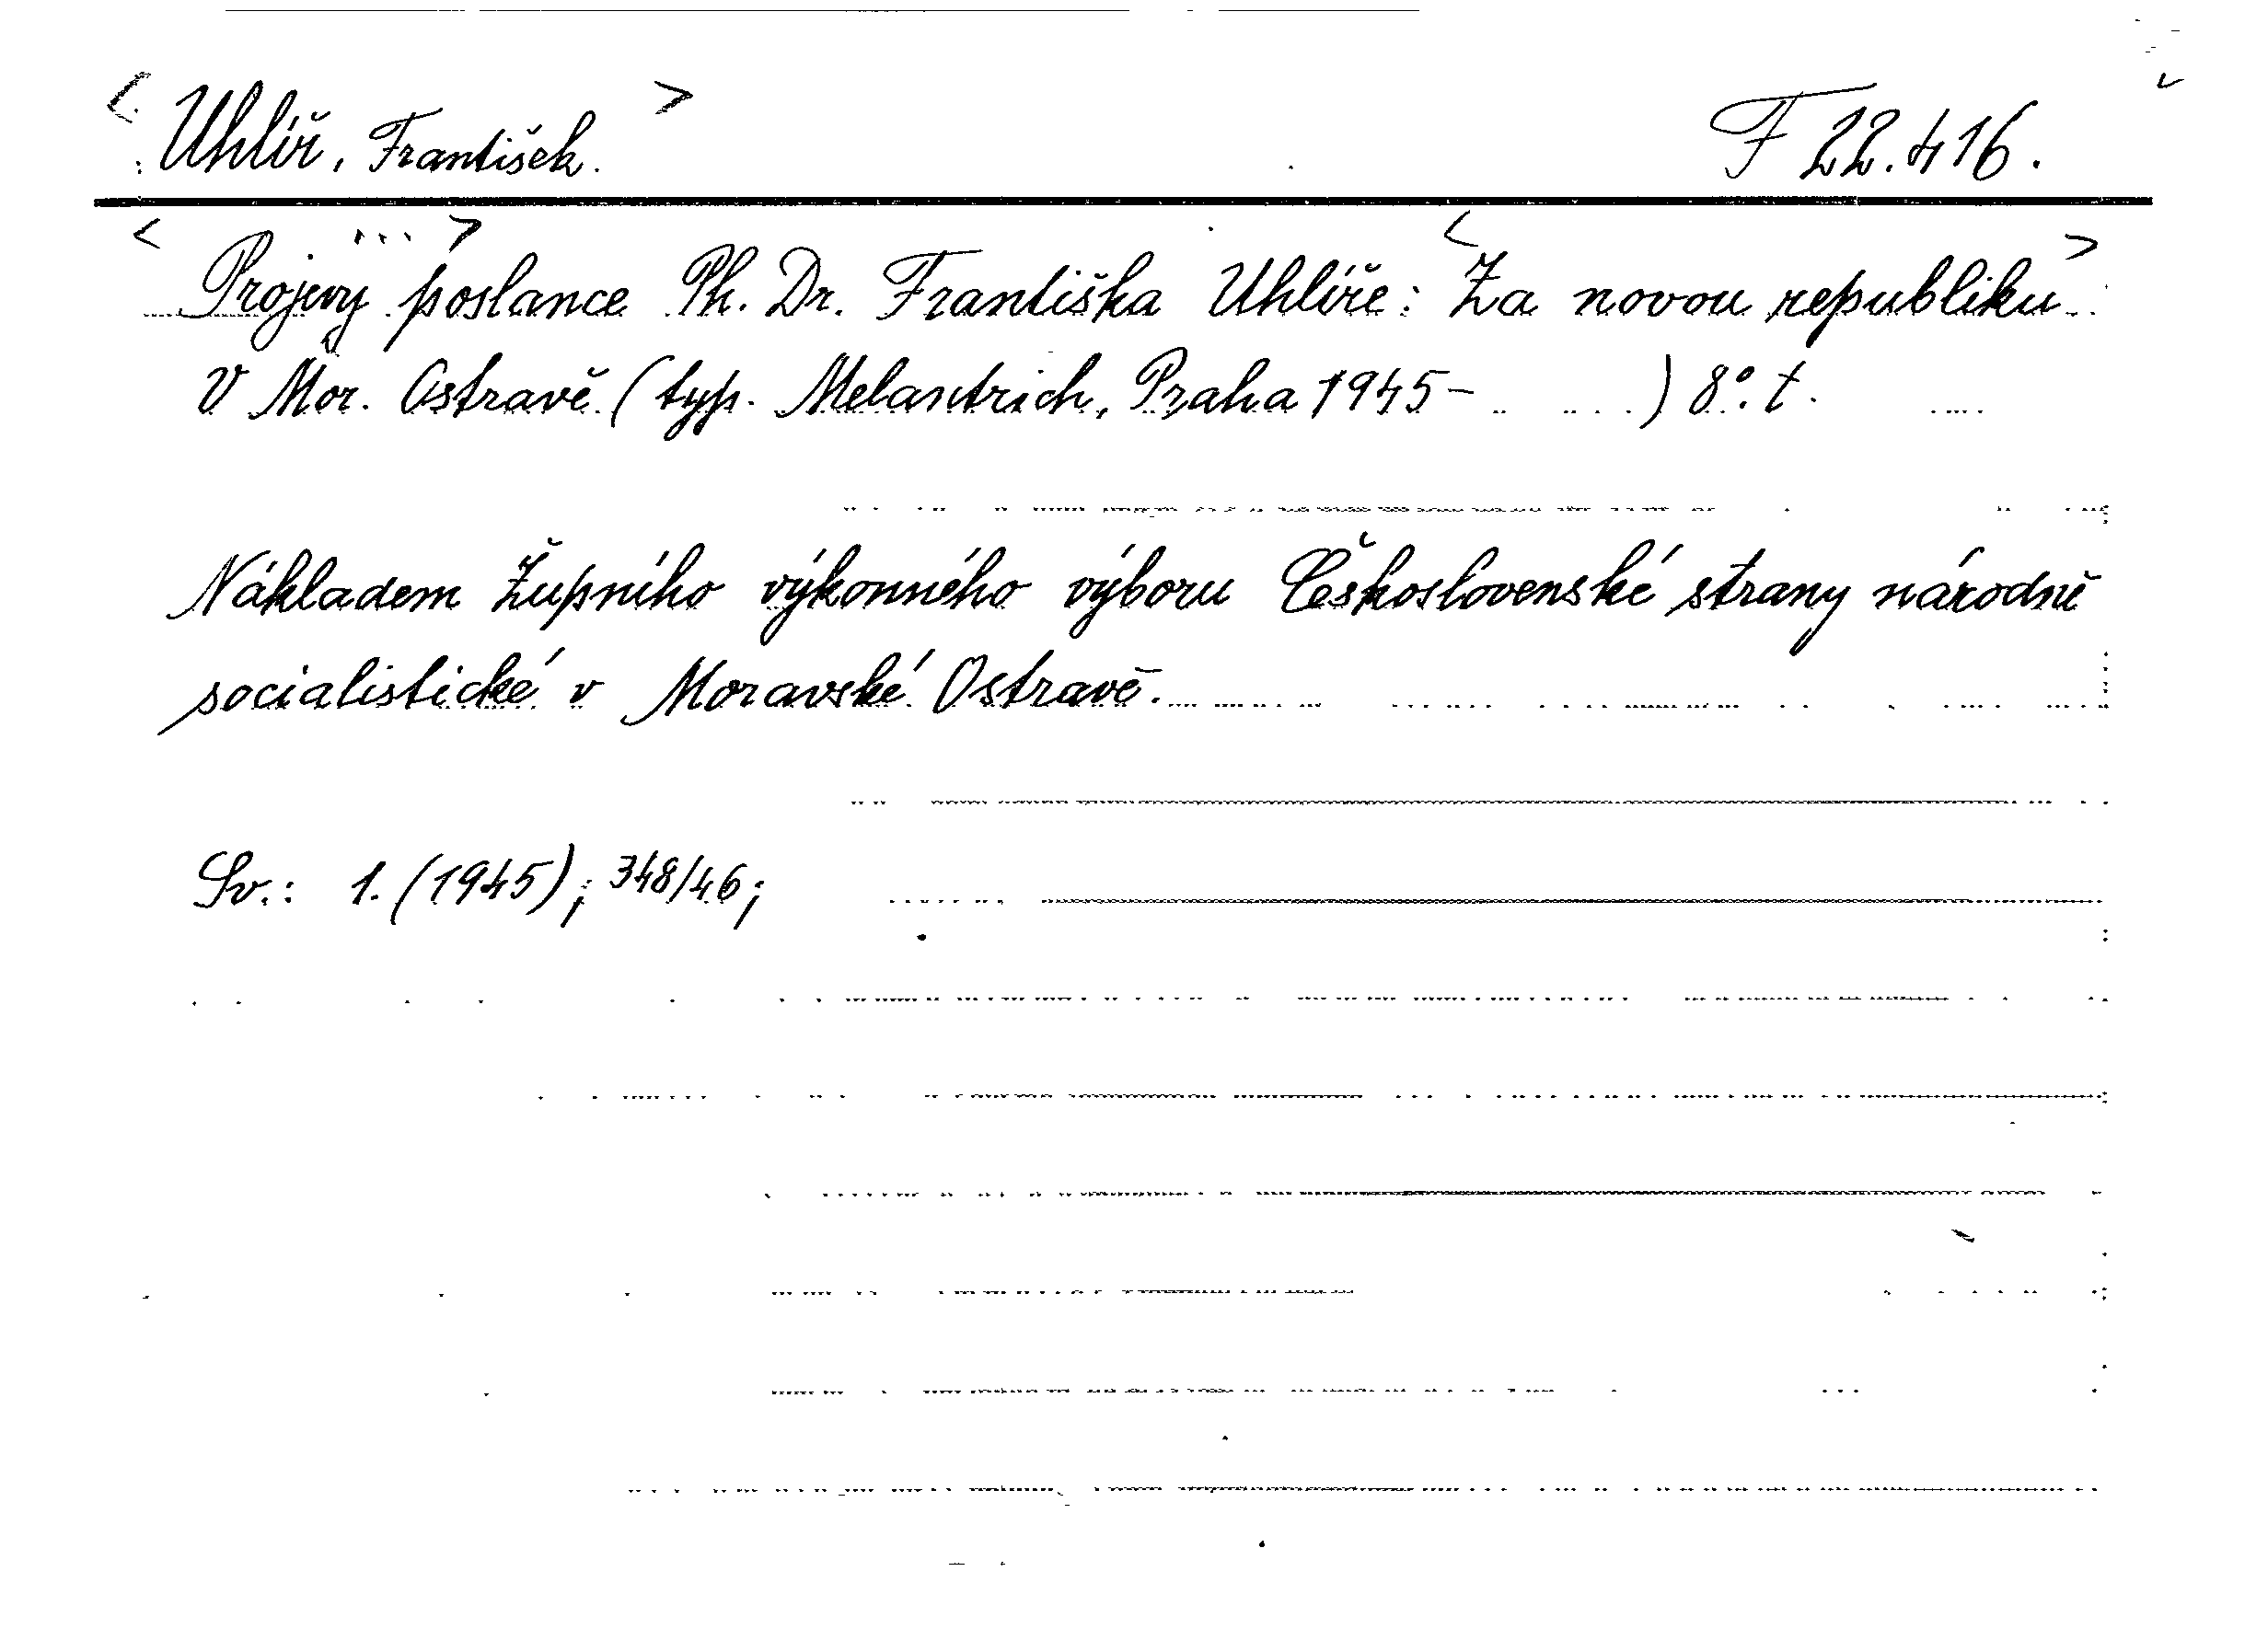 < Uhlíř, František. > F 22.416.
< Projevy ... > poslance Ph. Dr. Františka Uhlíře: < Za novou republiku >
V Mor. Ostravě (typ. Melantrich, Praha 1945- ) 8°. t.
Nákladem Župního výkonného výboru Československé strany národně
socialistické v Moravské Ostravě.
Sv.: 1. (1945); 348/46;